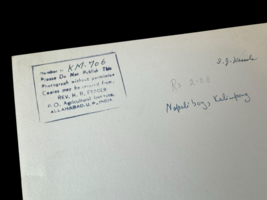 Number KM-706
Please Do Not Publish This
Photograph without permission
Copies may be ordered from:
REV. H. R. FERGER
P. O. Agricultural Institute,
ALLAHABAD, U.P., INDIA
Rs 2-
Nepali boy, Kalimpong